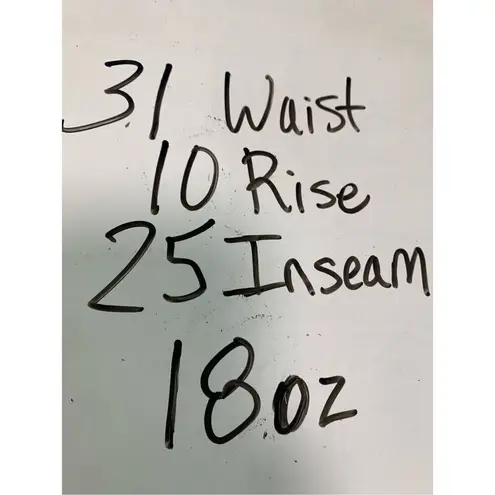 31 Waist
10 Rise
25 Inseam
18oz